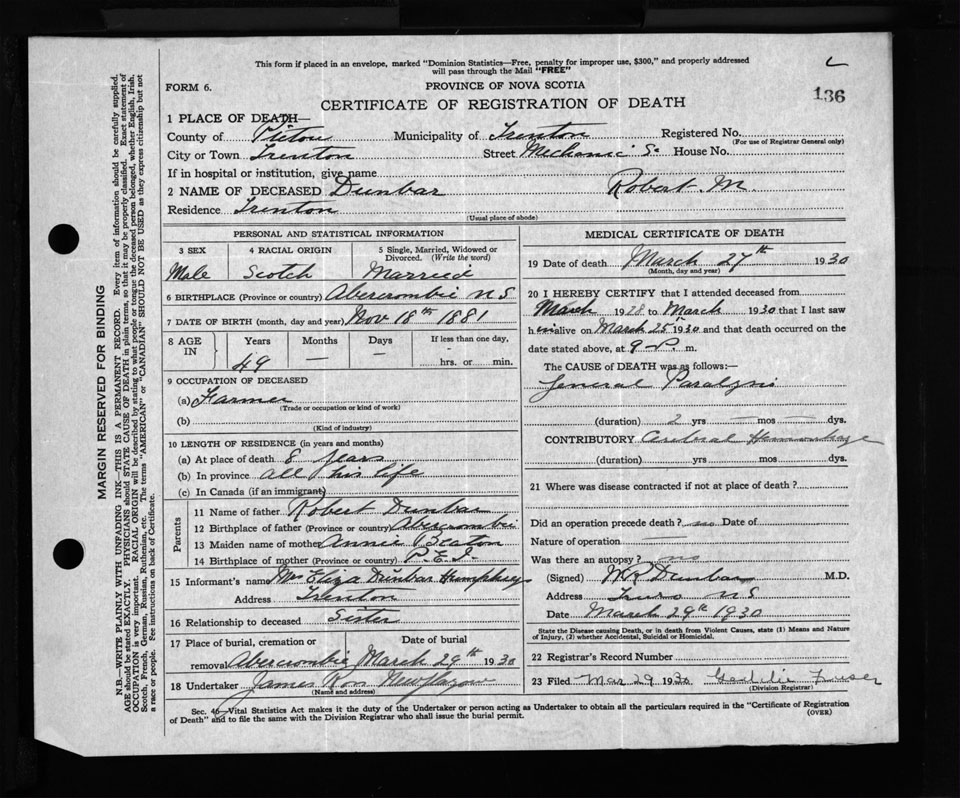 This form if placed in an envelope, marked "Dominion Statistics—Free, penalty for improper use, $300," and properly addressed
will pass through the Mail "FREE"
FORM 6.
PROVINCE OF NOVA SCOTIA
136
CERTIFICATE OF REGISTRATION OF DEATH
1 PLACE OF DEATH—
County of Pictou Municipality of Trenton Registered No.
(For use of Registrar General only)
City or Town Trenton Street Mechanic St House No.
If in hospital or institution, give name
2 NAME OF DECEASED Dunbar Robert. M
Residence Trenton
(Usual place of abode)
PERSONAL AND STATISTICAL INFORMATION
3 SEX 4 RACIAL ORIGIN 5 Single, Married, Widowed or Divorced. (Write the word)
Male Scotch Married
6 BIRTHPLACE (Province or country) Abercrombie N S
7 DATE OF BIRTH (month, day and year) Nov 18th 1881
8 AGE IN Years Months Days If less than one day,
49 — — hrs. or min.
9 OCCUPATION OF DECEASED
(a) Farmer
(Trade or occupation or kind of work)
(b)
(Kind of industry)
10 LENGTH OF RESIDENCE (in years and months)
(a) At place of death 8 years
(b) In province all his life
(c) In Canada (if an immigrant)
Parents
11 Name of father Robert Dunbar
12 Birthplace of father (Province or country) Abercrombie
13 Maiden name of mother Annie Beaton
14 Birthplace of mother (Province or country) P.E.I.
15 Informant's name Mrs Eliza Dunbar Humphrey
Address Trenton
16 Relationship to deceased Sister
17 Place of burial, cremation or removal Abercrombie Date of burial March 29th 1930
18 Undertaker James New Glasgow
(Name and address)
MEDICAL CERTIFICATE OF DEATH
19 Date of death March 27th 1930
(Month, day and year)
20 I HEREBY CERTIFY that I attended deceased from
March 1928 to March 1930 that I last saw
him alive on March 25 1930 and that death occurred on
date stated above, at 9 P. m.
The CAUSE of DEATH was as follows:—
General Paralysis
(duration) 2 yrs — mos — dys.
CONTRIBUTORY Cerebral Hemorrhage
(duration) yrs. mos. dys.
21 Where was disease contracted if not at place of death?
Did an operation precede death? no Date of
Nature of operation —
Was there an autopsy? no
(Signed) Dunbar M.D.
Address Truro N S
Date March 29th 1930
State the Disease causing Death, or in death from Violent Causes, state (1) Means and Nature
of Injury, (2) whether Accidental, Suicidal or Homicidal.
22 Registrar's Record Number
23 Filed Mar 29 1930
(Division Registrar)
Sec. 46—Vital Statistics Act makes it the duty of the Undertaker or person acting as Undertaker to obtain all the particulars required in the "Certificate of Registration
of Death" and to file the same with the Division Registrar who shall issue the burial permit.
(OVER)
MARGIN RESERVED FOR BINDING
N.B.—WRITE PLAINLY WITH UNFADING INK—THIS IS A PERMANENT RECORD. Every item of information should be carefully supplied.
AGE should be stated EXACTLY. PHYSICIANS should STATE CAUSE OF DEATH in plain terms, so that it may be properly classified. Exact statement of
OCCUPATION is very important. RACIAL ORIGIN will be described by stating to what people or tongue the deceased person belonged, whether English, Irish,
Scotch, French, German, Russian, Ruthenian, etc. The terms "AMERICAN" or "CANADIAN" SHOULD NOT BE USED as they express citizenship but not
a race or people. See instructions on back of Certificate.